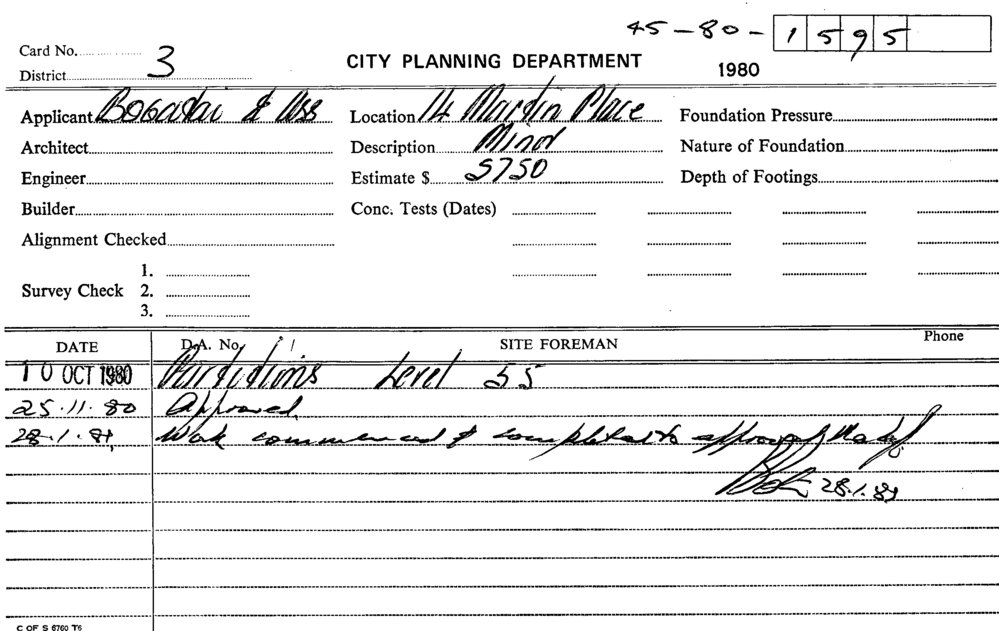 45-80-1595
Card No.
District 3
CITY PLANNING DEPARTMENT
1980
Applicant Bogatai & Ass Location 14 Martin Place Foundation Pressure
Architect Description Minor Nature of Foundation
Engineer Estimate $ 5750 Depth of Footings
Builder Conc. Tests (Dates)
Alignment Checked
1.
Survey Check 2.
3.
DATE D.A. No. SITE FOREMAN Phone
10 OCT 1980 Partitions Level 55
25.11.80 Approved
28.1.81 Work commenced & completed to approval
28.1.81
C OF S 6760 T6